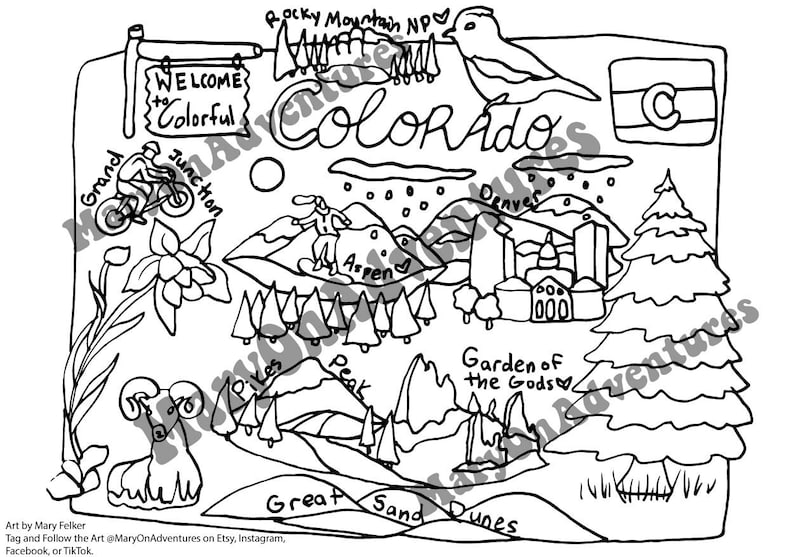 Rocky Mountain NP
WELCOME
to
Colorful
COLORADO
C
Grand Junction
Denver
Aspen
Pikes Peak
Garden of
the Gods
Great Sand Dunes
MaryOnAdventures
MaryOnAdventures
MaryOnAdventures
MaryOnAdventures
MaryOnAdventures
Art by Mary Felker
Tag and Follow the Art @MaryOnAdventures on Etsy, Instagram,
Facebook, or TikTok.